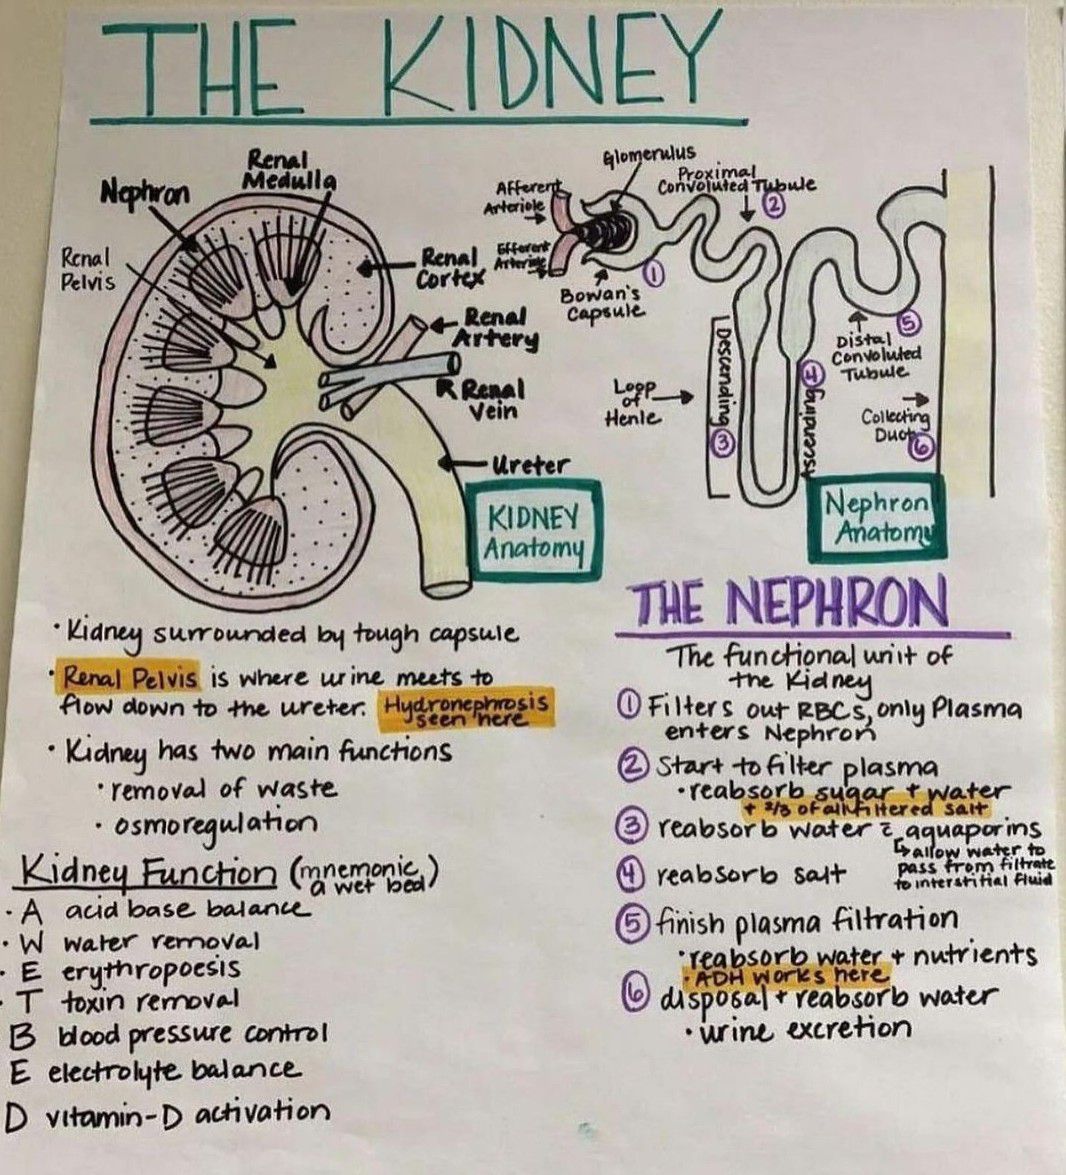 THE KIDNEY
Nephron
Renal
Medulla
Renal
Pelvis
Renal
Cortex
Renal
Artery
Renal
Vein
Ureter
KIDNEY
Anatomy
Glomerulus
Proximal
Convoluted Tubule
2
Afferent
Arteriole
Efferent
Arteriole
1
Bowan's
Capsule
Loop
of
Henle
Descending
3
4
Ascending
Distal
Convoluted
Tubule
5
Collecting
Duct
6
Nephron
Anatomy
• Kidney surrounded by tough capsule
• Renal Pelvis is where urine meets to
flow down to the ureter. Hydronephrosis
seen here
• Kidney has two main functions
• removal of waste
• osmoregulation
Kidney Function (mnemonic
a wet bed)
• A acid base balance
• W water removal
• E erythropoesis
• T toxin removal
B blood pressure control
E electrolyte balance
D vitamin-D activation
THE NEPHRON
The functional unit of
the Kidney
1 Filters out RBCs, only Plasma
enters Nephron
2 Start to filter plasma
• reabsorb sugar + water
+ 2/3 of all filtered salt
3 reabsorb water c̄ aquaporins
↳ allow water to
pass from filtrate
to interstitial fluid
4 reabsorb salt
5 finish plasma filtration
• reabsorb water + nutrients
• ADH works here
6 disposal + reabsorb water
• urine excretion